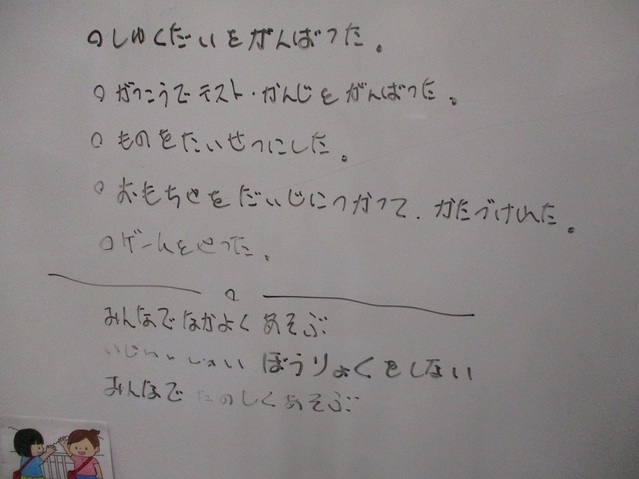 ○しゅくだいをがんばった。
○がっこうでテスト・かんじをがんばった。
○ものをたいせつにした。
○おもちゃをだいじにつかって、かたづけれた。
○ゲームをやった。
みんなでなかよくあそぶ
ぼうりょくをしない
みんなでたのしくあそぶ